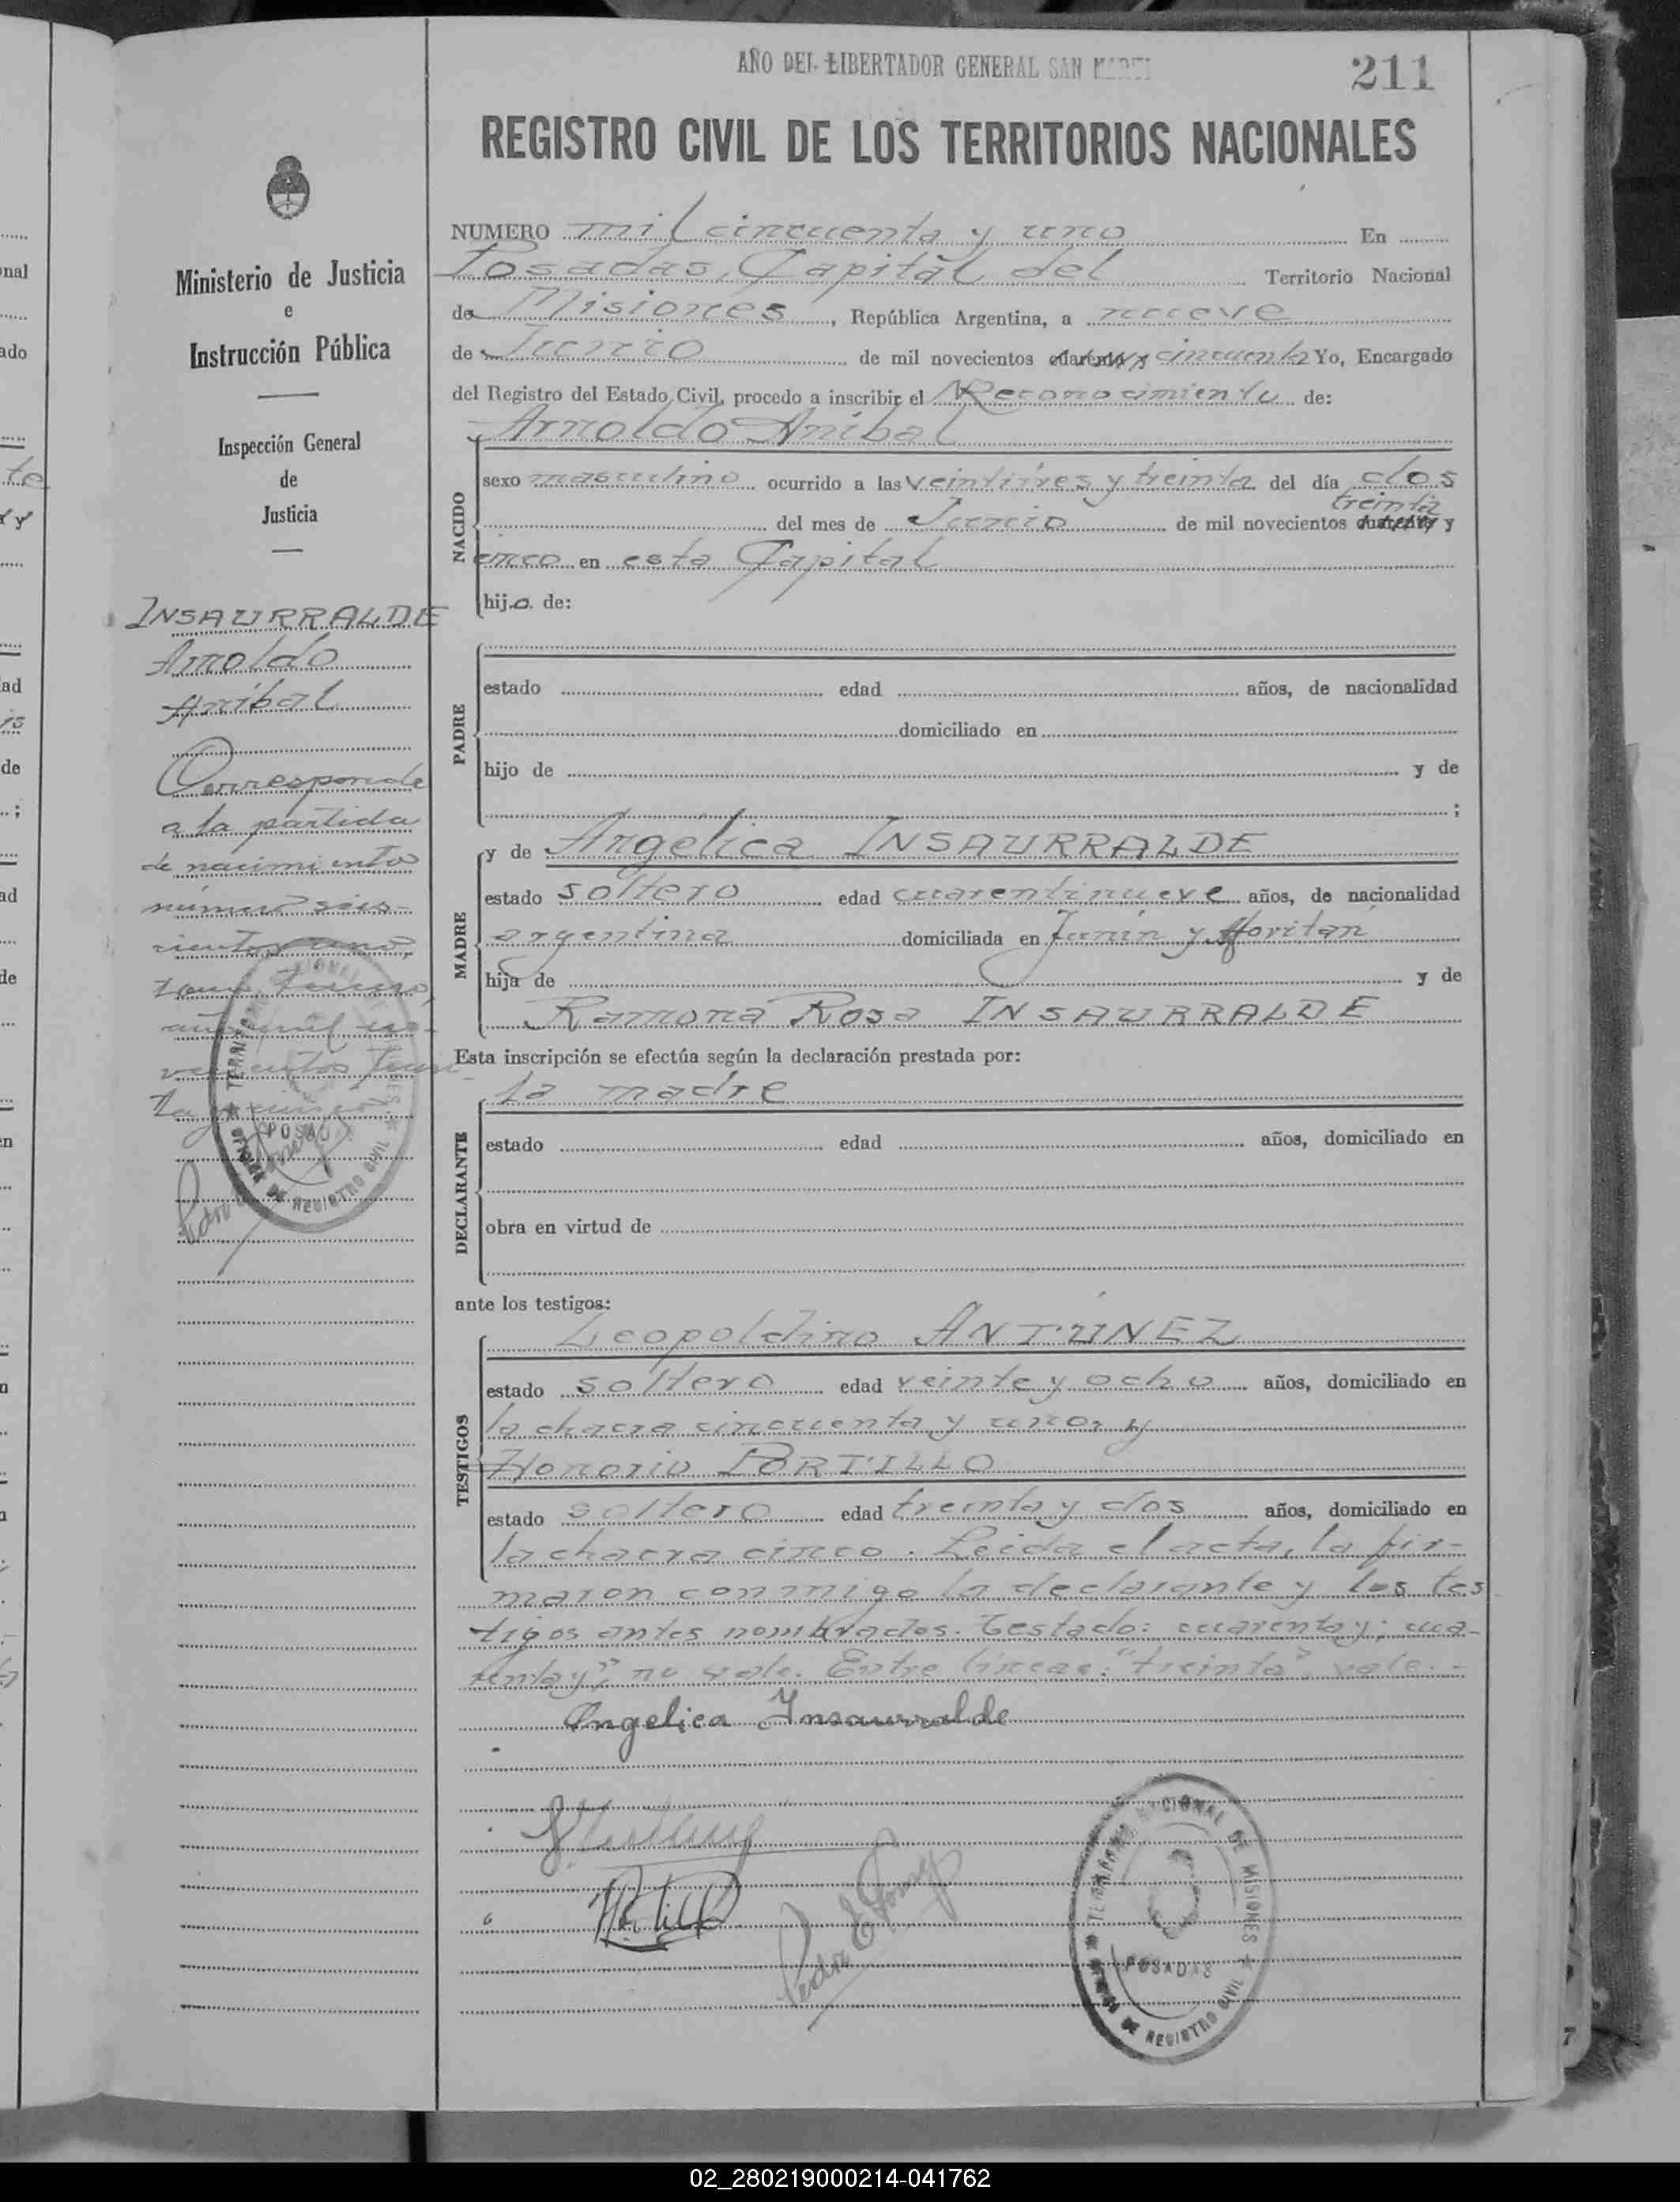 AÑO DEL LIBERTADOR GENERAL SAN
211
REGISTRO CIVIL DE LOS TERRITORIOS NACIONALES
Ministerio de Justicia
e
Instrucción Pública
Inspección General
de
Justicia
INSAURRALDE
Arnoldo
Anibal
Corresponde
a la partida
de nacimiento
número seis-
cientos uno,
tomo
año mil no-
vecientos trein
ta y cinco
NUMERO mil cincuenta y uno En
Posadas, Capital del Territorio Nacional
de Misiones, República Argentina, a nueve
de Junio de mil novecientos cuarenta y cincuenta Yo, Encargado
del Registro del Estado Civil, procedo a inscribir el Reconocimiento de:
Arnoldo Anibal
NACIDO
sexo masculino ocurrido a las veintitres y treinta del día dos
treinta
del mes de Junio de mil novecientos cuarenta y
cinco en esta Capital
hijo de:
PADRE
estado edad años, de nacionalidad
domiciliado en
hijo de y de
;
MADRE
y de Angélica INSAURRALDE
estado soltero edad cuarentinueve años, de nacionalidad
argentina domiciliada en Junín y
hija de y de
Ramona Rosa INSAURRALDE
Esta inscripción se efectúa según la declaración prestada por:
DECLARANTE
la madre
estado edad años, domiciliado en
obra en virtud de
ante los testigos:
TESTIGOS
Leopoldino ANTUNEZ
estado soltero edad veinte y ocho años, domiciliado en
la chacra cincuenta y uno, y
Honorio PORTILLO
estado soltero edad treinta y dos años, domiciliado en
la chacra cinco. Leida el acta, la fir-
maron conmigo la declarante y los tes
tigos antes nombrados. Testado: cuarenta y; cua-
renta y" no vale. Entre líneas: "treinta" vale.-
Angelica Insaurralde
TERRITORIO NACIONAL DE MISIONES
POSADAS
OFICINA DE REGISTRO CIVIL
02_280219000214-041762